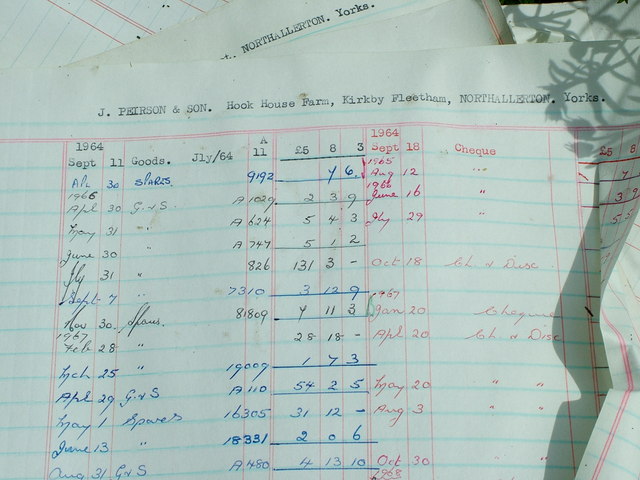 NORTHALLERTON. Yorks.
J. PEIRSON & SON. Hook House Farm, Kirkby Fleetham, NORTHALLERTON. Yorks.
1964 A 1964
Sept 11 Goods. Jly/64 11 £5 8 3 Sept 18 Cheque £5 8
1965
30 SPARES 9192 7 6. Aug 12 "
1966 1966
Apl 30 G & S A 1029 2 3 9 June 16 "
May 31 " A 624 5 4 3 Jly 29 "
June 30 " A 747 5 1 2
Jly 31 " 826 131 3 - Oct 18 Ch. & Disc
Sept 7 " 7310 3 12 9
1967
Nov 30. Spares 81809 7 11 3 Jan 20 Cheque
1967
Feb 28 " 28 18 - Apl 20 Ch. & Disc
Mch 25 " 19009 1 7 3
Apl 29 G & S A 110 54 2 5 May 20 " "
May 1 Spares 16305 31 12 - Aug 3 " "
June 13 " 18331 2 0 6
Aug 31 G & S A 480 4 13 10 Oct 30 " "
1968